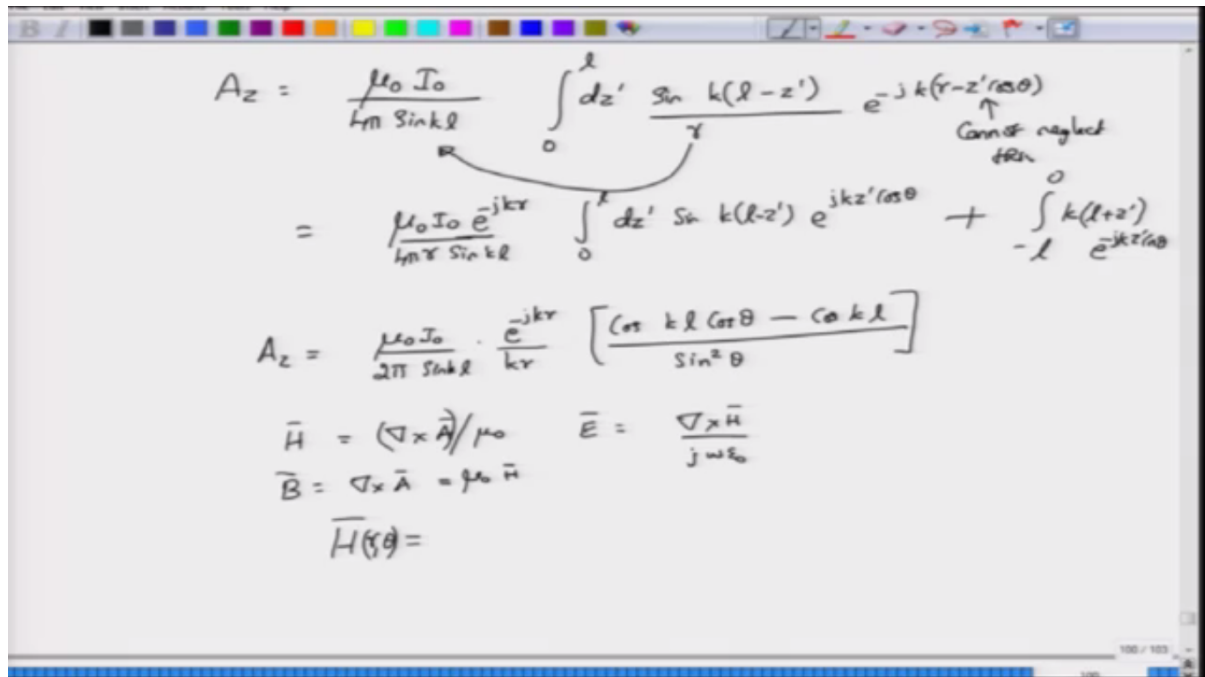 B I
A_z = μ₀ I₀ / 4π Sinkl ∫₀^l dz' Sin k(l - z') / r e^{-jk(r - z' cosθ)}
Cannot neglect
this
= μ₀ I₀ e^{-jkr} / 4πr Sinkl ∫₀^l dz' Sin k(l-z') e^{jkz' cosθ} + ∫_{-l}^0 k(l+z') e^{-jkz' cosθ}
A_z = μ₀ I₀ / 2π Sinkl · e^{-jkr} / kr [Cos kl Cosθ - Cos kl / Sin² θ]
H̄ = (∇ × Ā)/μ₀ Ē = ∇ × H̄ / jωε₀
B̄ = ∇ × Ā = μ₀ H̄
H̄(r,θ) =
100 / 103
100